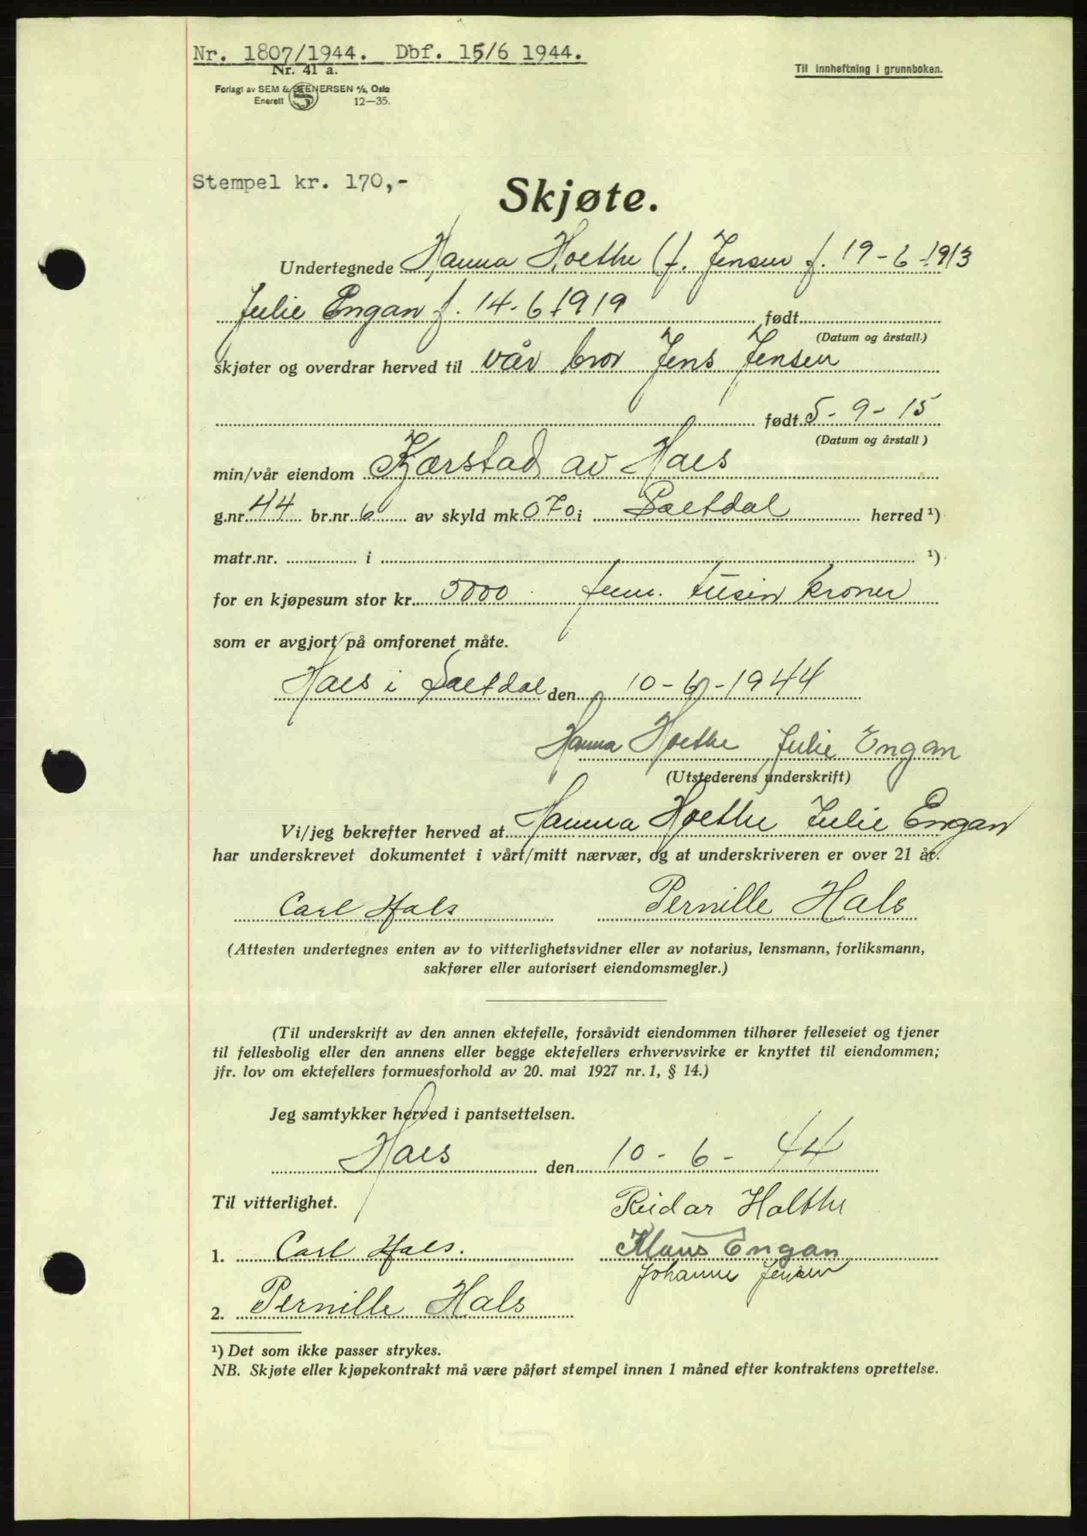 Nr. 1807/1944. Dbf. 15/6 1944.
Nr. 41 a.
Til innheftning i grunnboken.
Forlagt av SEM & STENERSEN A/S, Oslo
Enerett 12—35.
Stempel kr. 170,-
Skjøte.
Undertegnede Hanna Holthe (f. Jensen f. 19-6-1913
Julie Engan f. 14-6-1919 født
(Datum og årstall.)
skjøter og overdrar herved til vår bror Jens Jensen
født 5-9-15
(Datum og årstall)
min/vår eiendom Kjærstad av Hals
g.nr. 44 br.nr. 6 av skyld mk. 070 i Saltdal herred ¹)
matr.nr. i ¹)
for en kjøpesum stor kr. 5000 fem tusin kroner
som er avgjort på omforenet måte.
Hals i Saltdal den 10-6-1944
Hanna Holthe Julie Engan
(Utstederens underskrift)
Vi/jeg bekrefter herved at Hanna Holthe Julie Engan
har underskrevet dokumentet i vårt/mitt nærvær, og at underskriveren er over 21 år.
Carl Hals Pernille Hals
(Attesten undertegnes enten av to vitterlighetsvidner eller av notarius, lensmann, forliksmann,
sakfører eller autorisert eiendomsmegler.)
(Til underskrift av den annen ektefelle, forsåvidt eiendommen tilhører felleseiet og tjener
til fellesbolig eller den annens eller begge ektefellers erhvervsvirke er knyttet til eiendommen;
jfr. lov om ektefellers formuesforhold av 20. mai 1927 nr. 1, § 14.)
Jeg samtykker herved i pantsettelsen.
Hals den 10-6-44
Til vitterlighet. Reidar Holthe
1. Carl Hals. Klaus Engan
Johanne Jensen
2. Pernille Hals
¹) Det som ikke passer strykes.
NB. Skjøte eller kjøpekontrakt må være påført stempel innen 1 måned efter kontraktens oprettelse.